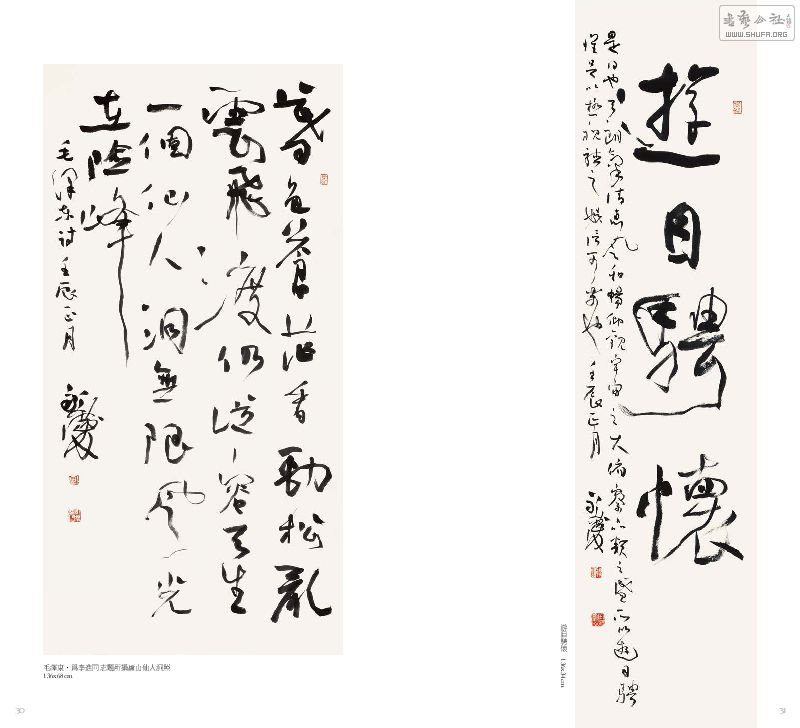 暮色蒼茫看勁松亂
雲飛渡仍從容天生
一個仙人洞無限風光
在險峰
毛澤東詩 壬辰正月
毛澤東·爲李進同志題所攝廬山仙人洞照
136x68cm
30
WWW.SHUFA.ORG
遊目騁懷
是日也天朗氣清惠風和暢仰觀宇宙之大俯察品類之盛所以遊目騁
懷足以極視聽之娛信可樂也 壬辰正月
遊目騁懷 136x34cm
31